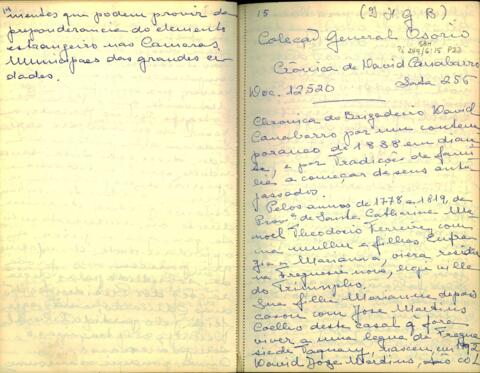 14
mentos que podem provir da
preponderancia do elemento
estrangeiro nas Camaras
Municipaes das grandes ci-
dades.
15
(I H G B)
Coleção General Osorio
Crônica de David Canabarro
Doc. 12520
Lata 256
Chronica do Brigadeiro David
Canabarro por um contem
poraneo de 1838 em dian
te, e por Tradições de fami
lia a começar de seus ante
passados.
Pelos annos de 1778 a 1819, da
Prov.ª de Santa Catharina Ma
noel Theodosio Ferreira, com
sua mulher e filhas, Eufra
zia e Marianna, viera residir
na Freguesia nova, hoje villa
do Triumpho.
Sua filha Marianna depois
casou com José Martins
Coelho deste casal q fora
viver a uma legua da Fregue
sia de Taquary, nasceu em
David José Martins,